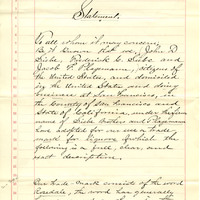 Statement.
To all whom it may concern,
Be it known that we, John D
Siebe, Frederick C. Siebe and
Jacob F. Plagemann, citizens of
the United States, and domiciled
in the United States and doing
business at San Francisco, in
the County of San Francisco and
State of California, under the firm
name of Siebe Brothers and Plagemann
have adopted for use a trade
mark for Liquors of which the
following is a full, clear, and
exact description.
Our trade-mark consists of the word
Rosedale, the word has generally